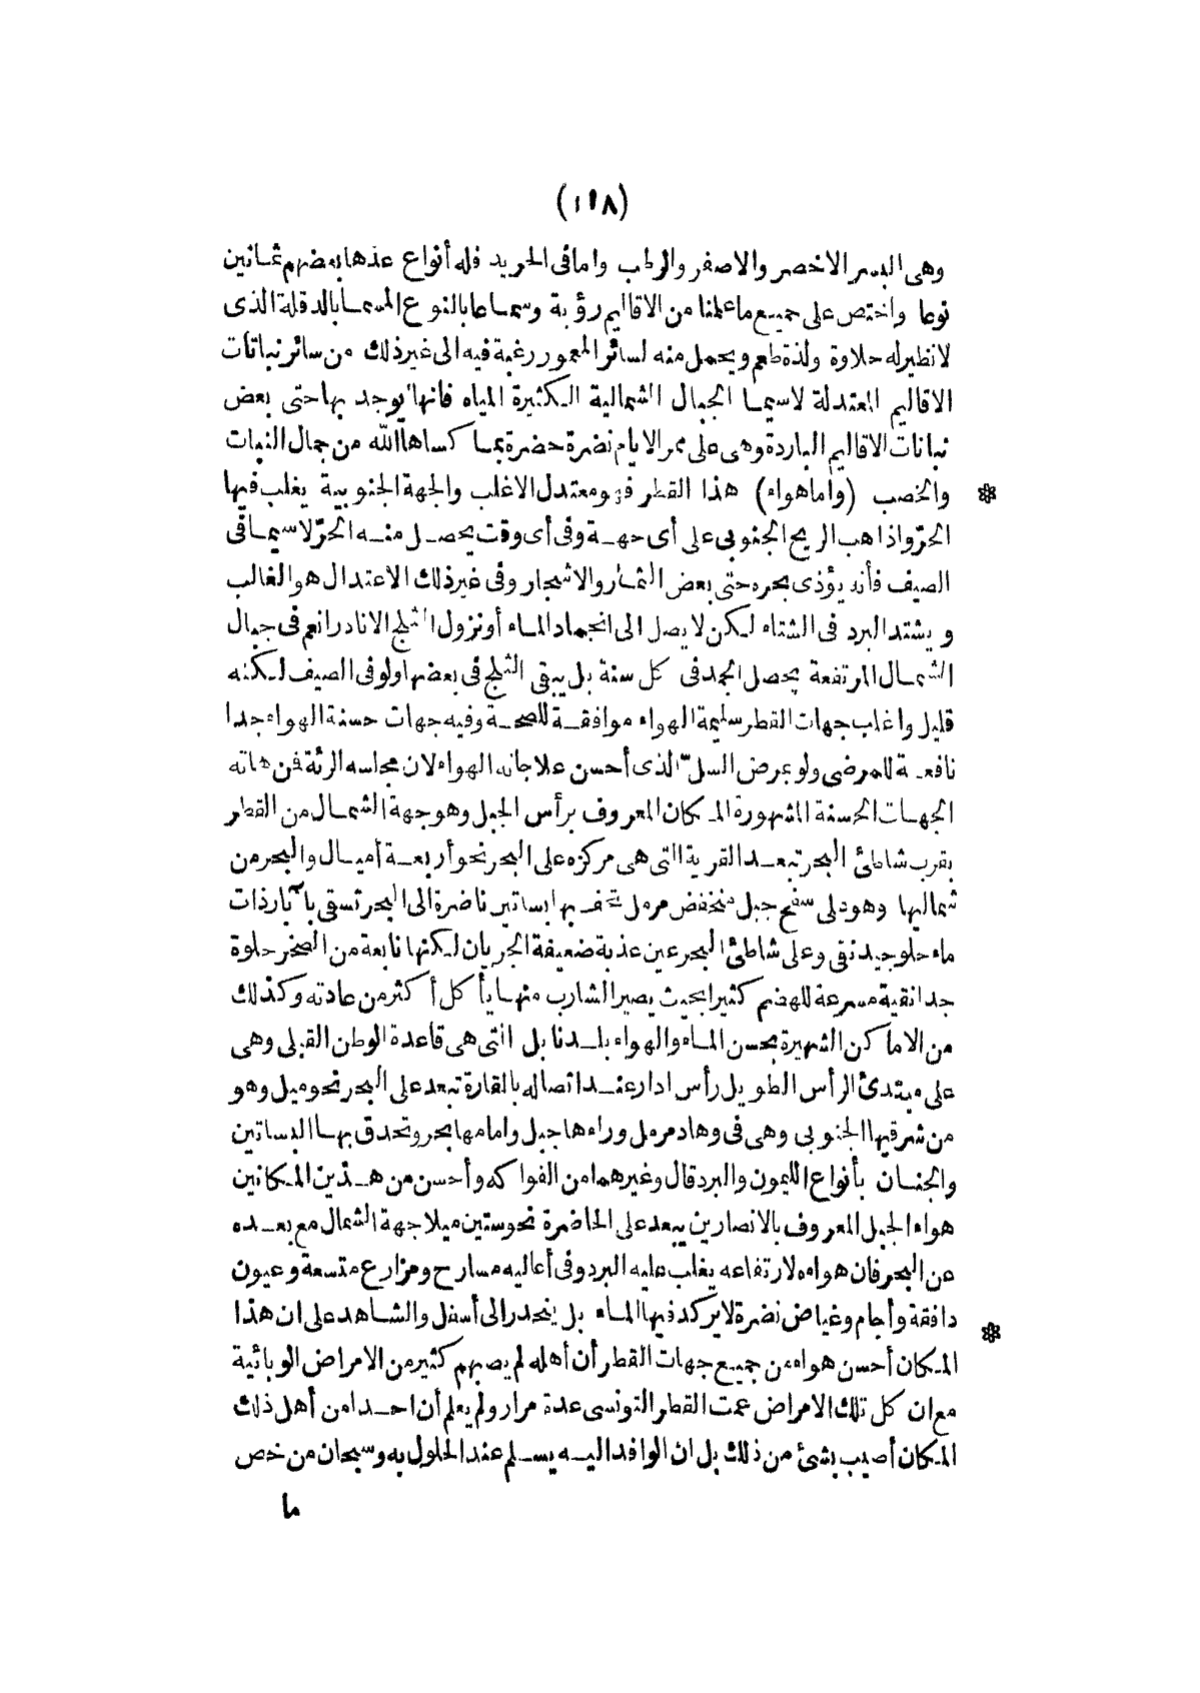 (١١٨)
وهى البسر الاخضر والاصفر والرطب وامافى الجريد فله أنواع عدها بعضهم ثمانين
نوعا واختص على جميع ماعلمنا من الاقاليم رؤية وسماعا بالنوع المسمى بالدقلة الذى
لانظيرله حلاوة ولذة طعم ويحمل منه لسائر المعمور رغبة فيه الى غير ذلك من سائر نباتات
الاقاليم المعتدلة لاسيما الجبال الشمالية الكثيرة المياه فانها يوجد بها حتى بعض
نباتات الاقاليم الباردة وهى على ممر الايام نضرة خضرة بما كساها الله من جمال النبات
والخصب (وأماهواء) هذا القطر فهو معتدل الاغلب والجهة الجنوبية يغلب فيها *
الحرّ واذا هب الريح الجنوبى على أى جهة وفى أى وقت يحصل منه الحرّ لاسيما فى
الصيف فأنه يؤذى بحره حتى بعض الثمار والاشجار وفى غير ذلك الاعتدال هو الغالب
ويشتد البرد فى الشتاء لكن لا يصل الى انجماد الماء أونزول الثلج الانادرا نعم فى جبال
الشمال المرتفعة يحصل الجمد فى كل سنة بل يبقى الثلج فى بعضها ولو فى الصيف لكنه
قليل واغلب جهات القطر سليمة الهواء موافقة للصحة وفيه جهات حسنة الهواء جدا
نافعة للمرضى ولو بمرض السلّ الذى أحسن علاجاته الهواء لان مجلسه الرئة فمن هاته
الجهات الحسنة المشهورة المكان المعروف برأس الجبل وهو جهة الشمال من القطر
بقرب شاطئ البحر تبعد القرية التى هى مركزه على البحر نحو أربعة أميال والبحر من
شماليها وهو على سفح جبل منخفض مرمل تحف بها بساتين ناضرة الى البحر تسقى باآبار ذات
ماء حلو جيد نقى وعلى شاطئ البحر عين عذبة ضعيفة الجريان لكنها نابعة من الصخر حلوة
جدا نقية مسرعة للهضم كثيرا بحيث يصير الشارب منها يأكل أكثر من عادته وكذلك
من الاماكن الشهيرة بحسن الماء والهواء بلد نابل التى هى قاعدة الوطن القبلى وهى
على مبتدئ الرأس الطويل رأس ادار عند اتصاله بالقارة تبعد على البحر نحو ميل وهو
من شرقيها الجنوبى وهى فى وهاد مرمل وراءها جبل وامامها بحر وتحدق بها البساتين
والجنان بأنواع الليمون والبردقال وغيرهما من الفواكه وأحسن من هذين المكانين
هواء الجبل المعروف بالانصارين يبعد على الحاضرة نحو ستين ميلا جهة الشمال مع بعده
عن البحر فان هواءه لارتفاعه يغلب عليه البرد وفى أعاليه مسارح ومزارع متسعة وعيون
دافقة وأجام وغياض نضرة لا يركد فيها الماء بل ينحدر الى أسفل والشاهد على ان هذا *
المكان أحسن هواء من جميع جهات القطر أن أهله لم يصبهم كثير من الامراض الوبائية
مع ان كل تلك الامراض عمت القطر التونسى عدة مرار ولم يعلم أن احدا من أهل ذلك
المكان أصيب بشئ من ذلك بل ان الوافد اليه يسلم عند الحلول به وسبحان من خص
ما